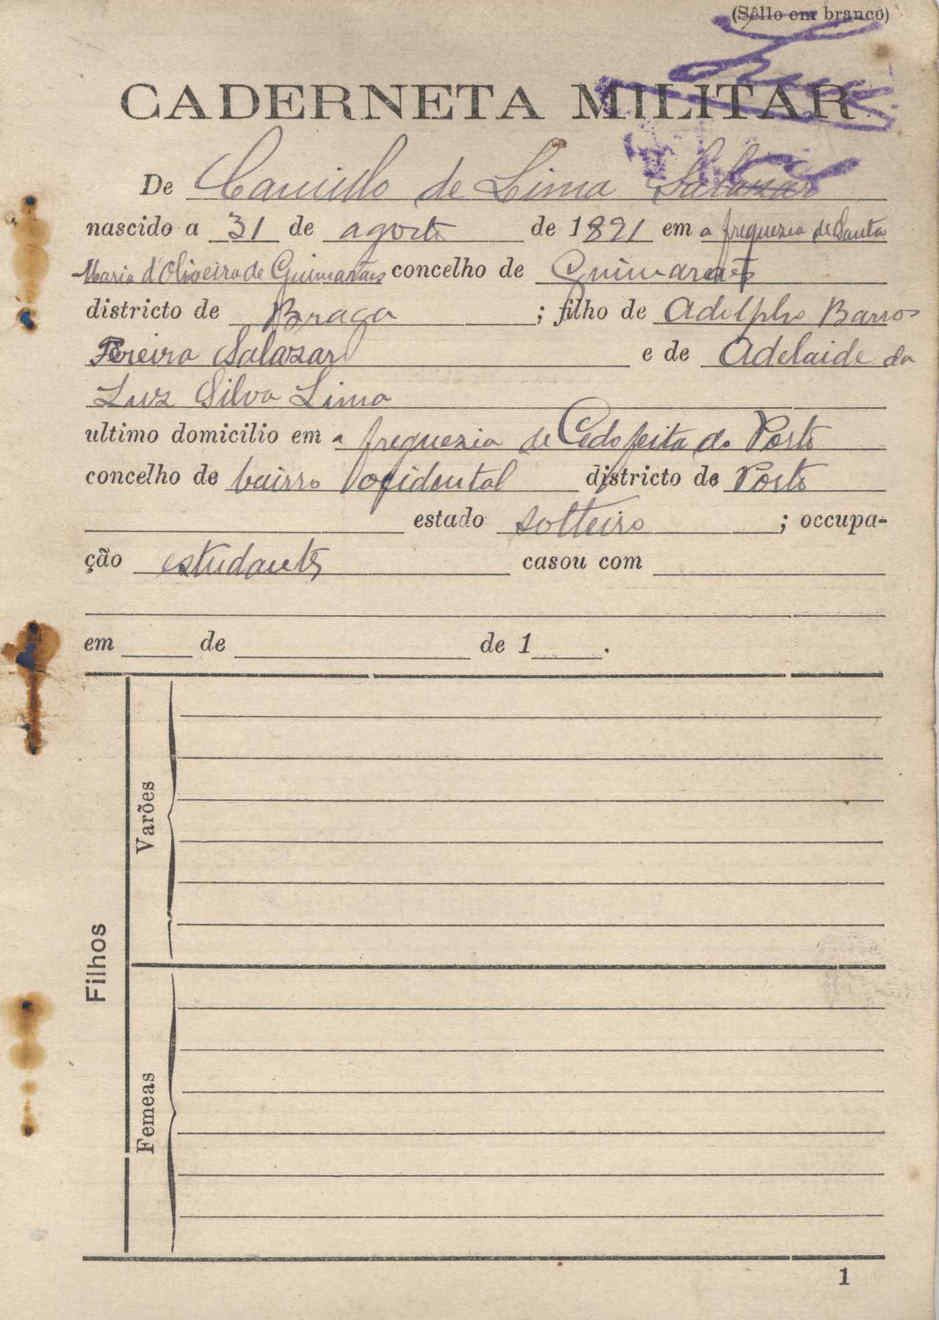 (Sêllo em branco)
CADERNETA MILITAR
De Camillo de Lima Salazar
nascido a 31 de agosto de 1891 em a freguezia de Santa
Maria d'Oliveira de Guimarães concelho de Guimarães
districto de Braga ; filho de Adolpho Barros
Pereira Salazar e de Adelaide da
Luz Silva Lima
ultimo domicilio em a freguezia de Cedofeita do Porto
concelho de bairro Occidental districto de Porto
estado solteiro ; occupa-
ção estudante casou com
em de de 1 .
Filhos
Varões
Femeas
1